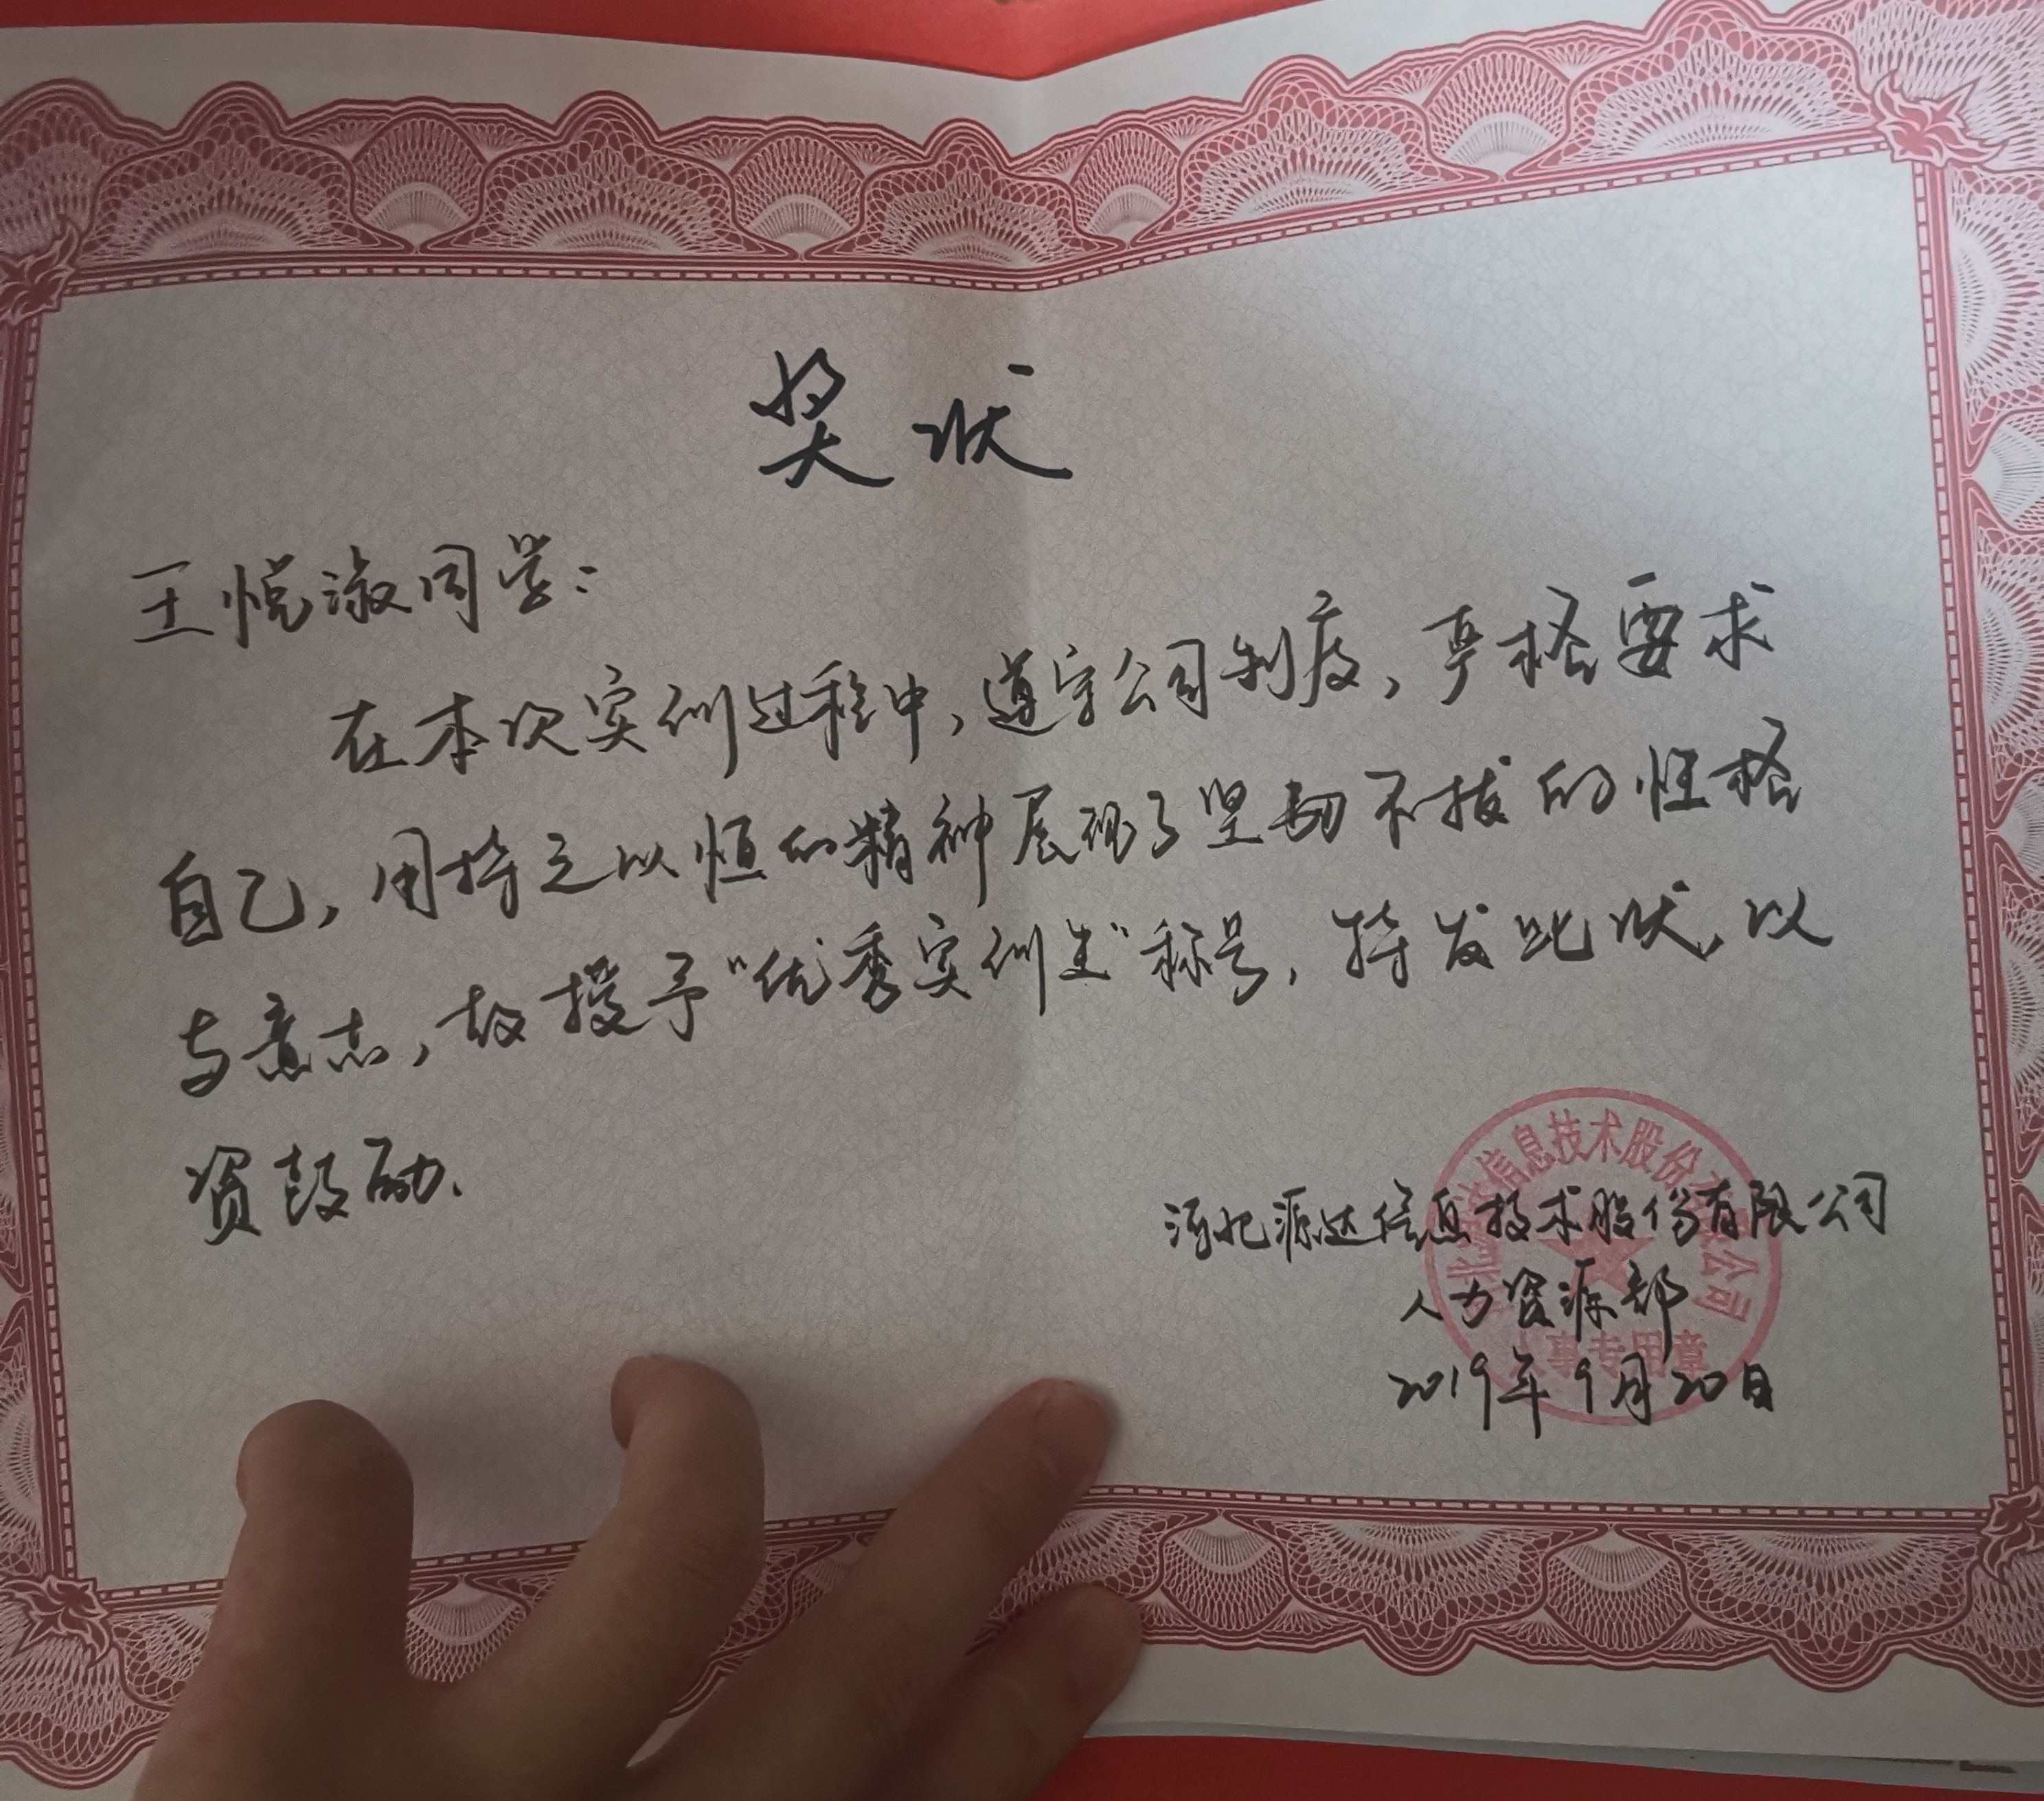 奖状
王悦淑同学：
在本次实训过程中，遵守公司制度，严格要求
自己，用持之以恒的精神展现了坚韧不拔的性格
与意志，故授予“优秀实训生”称号，特发此状，以
资鼓励.
河北源达信息技术股份有限公司
人力资源部
2019年9月20日
北 信息技术股份 公司
事专用章